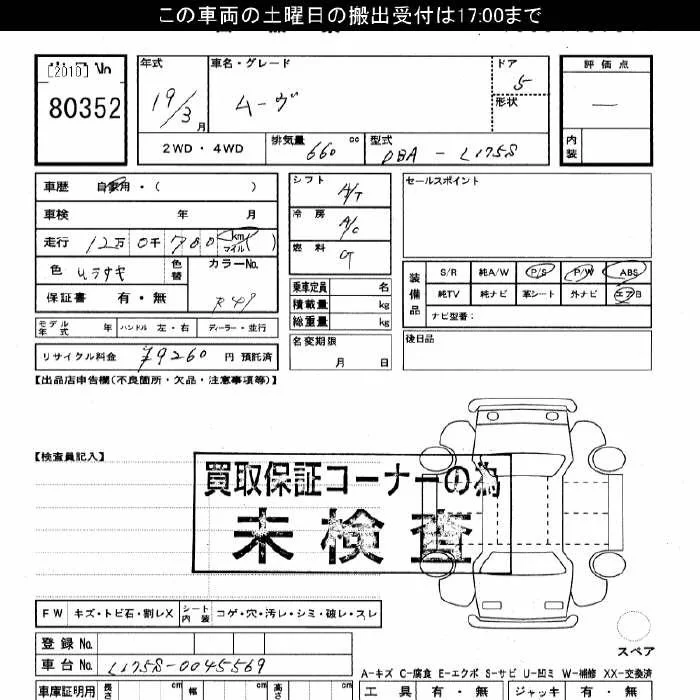 この車両の土曜日の搬出受付は17:00まで
[2010] No
80352
年式 車名・グレード ドア 評価点
19/3 月 ムーヴ 5 —
形状
2WD・4WD 排気量 660 cc 型式 DBA - L175S 内装
車歴 自家用・( )
車検 年 月
走行 12万 0千 780 km マイル( )
色 ムラサキ 色替 カラーNo. R49
保証書 有・無
モデル年式 年 ハンドル 左・右 ディーラー・並行
リサイクル料金 ¥9260 円 預託済
シフト A/T
冷房 A/C
燃料 G
乗車定員 名
積載量 kg
総重量 kg
名変期限 月 日
セールスポイント
装備品 S/R 純A/W P/S P/W ABS
純TV 純ナビ 革シート 外ナビ エアB
ナビ型番:
後日品
【出品店申告欄(不良箇所・欠品・注意事項等)】
【検査員記入】
買取保証コーナーの為
未検査
FW キズ・トビ石・割レX シート内装 コゲ・穴・汚レ・シミ・破レ・スレ
登録No.
車台No. L175S-0045569
車庫証明用 長さ cm 幅 cm 高さ cm
スペア
A-キズ C-腐食 E-エクボ S-サビ U-凹ミ W-補修 XX-交換済
工具 有・無 ジャッキ 有・無